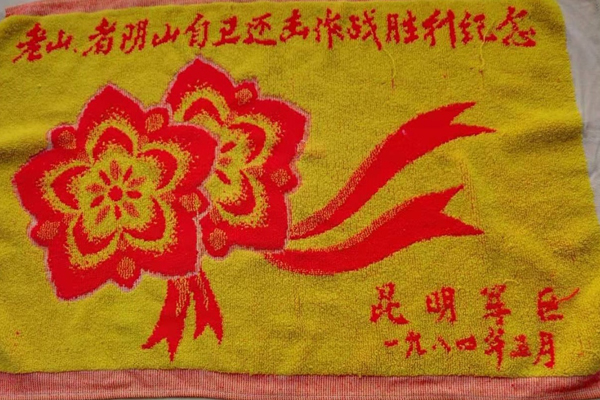 老山、者阴山自卫还击作战胜利纪念
昆明军区
一九八四年五月